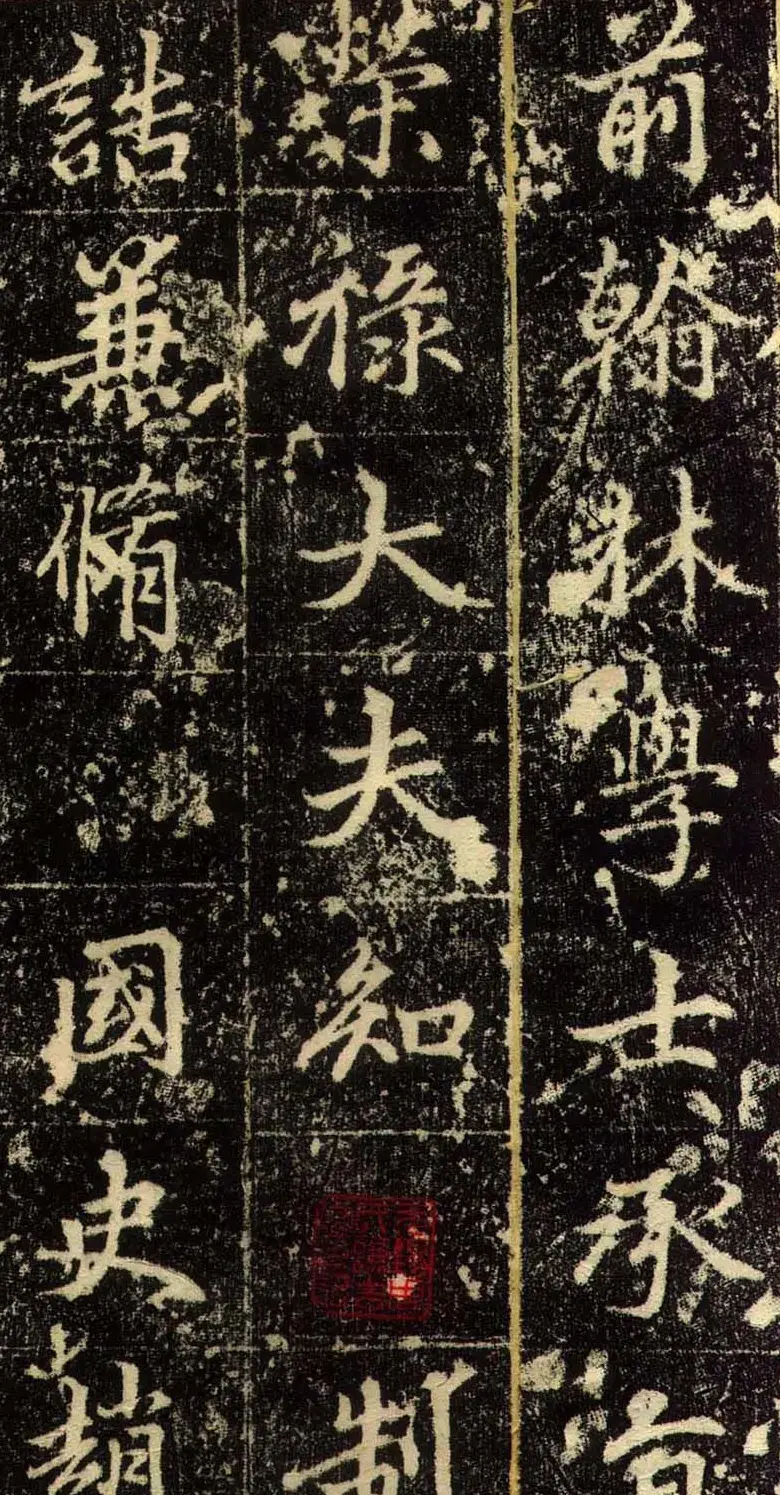 前翰林學士承旨
榮祿大夫知制
誥兼脩國史趙